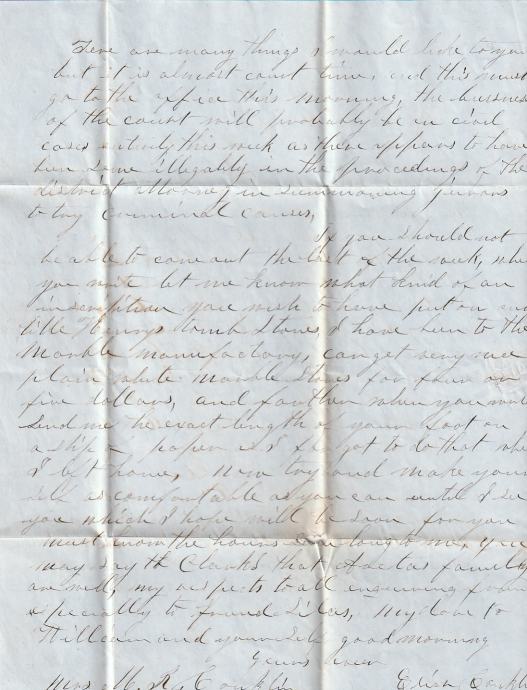 There are many things I would like to you
but it is almost court time, and this must
go to the office this morning, the business
of the court will probably be in civil
cases entirely this week as there appears to have
been some illegality in the proceedings of the
District Attorney in summoning persons
to try Criminal causes,
If you should not
be able to come out the last of the week, when
you write let me know what kind of an
inscription you wish to have put on our
little Henrys tomb Stones, I have been to the
Marble manufactory, can get very nice
plain white Marble Stones for four or
five dollars, and further when you write
Send me the exact length of your foot on
a slip of paper as I forgot to do that when
I left home, Now try and make your
self as comfortable as you can until I see
you which I hope will be soon for you
must know the hours are long to me, you
may say to Clarks that family
are well, my respects to all enquiring friends
especially to friend Silas, My love to
William and yourself good morning
Yours ever
Mrs M. A. Conklin